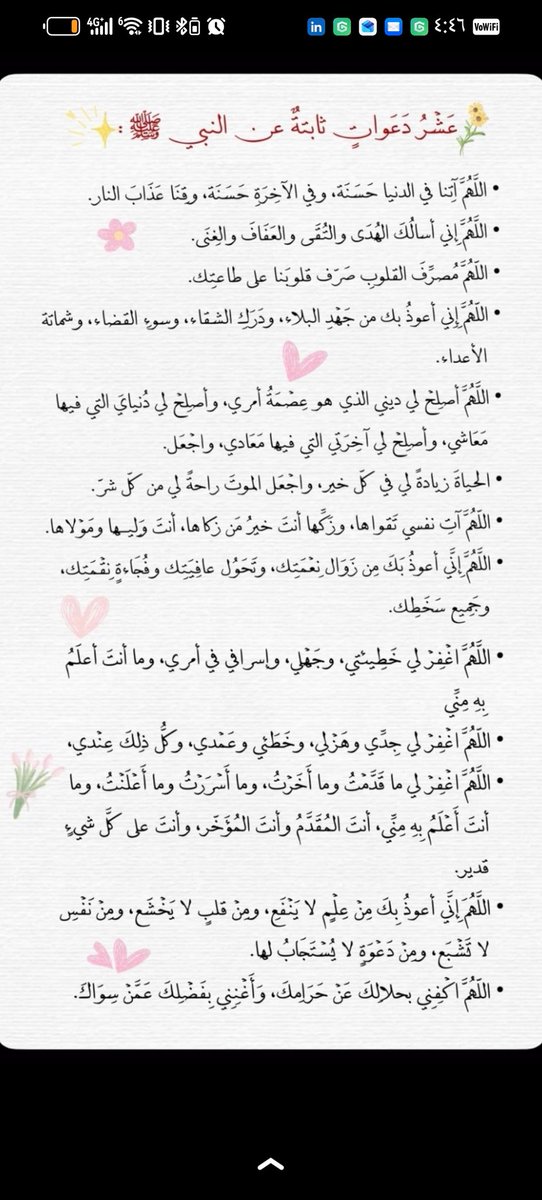 4G 6 in ٤:٤٦ VoWiFi
عَشْرُ دَعَواتٍ ثابتةٌ عن النبي ﷺ :
• اللَّهُمَّ آتِنا في الدنيا حَسَنَة، وفي الآخِرَةِ حَسَنَة، وقِنَا عَذَابَ النار.
• اللَّهُمَّ إني أسالُكَ الهُدَى والتُقَى والعَفَافَ والغِنَى.
• اللَّهُمَّ مُصرِّفَ القلوبِ صَرّف قلوبَنا على طاعتِك.
• اللَّهُمَّ إِنِي أعوذُ بك من جَهْدِ البلاءِ، ودَرَكِ الشقاء، وسوءِ القضاء، وشماتة
الأعداء.
• اللَّهُمَّ أصلِحْ لي ديني الذي هو عِصْمَةُ أمري، وأصلِحْ لي دُنيايَ التي فيها
مَعَاشي، وأصلِحْ لي آخِرَتي التي فيها مَعَادي، واجْعَل.
• الحياةَ زيادةً لي في كلّ خير، واجْعَل الموتَ راحةً لي من كلّ شرّ.
• اللَّهُمَّ آتِ نفسي تَقواها، وزكِّها أنتَ خيرُ مَن زكاها، أنتَ وَليـها ومَوْلاها.
• اللَّهُمَّ إِنَّي أعوذُ بَكَ مِن زَوَال نِعْمَتِك، وتَحَوُل عافِيَتِك وفُجَاءةٍ نقْمَتِك،
وجَمِيع سَخَطِك.
• اللَّهُمَّ اغْفِرْ لي خَطِيئتي، وجَهْلي، وإسرافي في أمري، وما أنتَ أعلَمُ
بِهِ مِنِّي
• اللَّهُمَّ اغْفِرْ لي جِدِّي وهَزْلي، وخَطَئي وعَمْدي، وكلُّ ذلِكَ عِندي،
• اللَّهُمَّ اغْفِرْ لي ما قَدَّمْتُ وما أَخَرْتُ، وما أَسْرَرْتُ وما أَعْلَنْتُ، وما
أنتَ أَعْلَمُ بِهِ مِنِّي، أنتَ المُقَدَّمُ وأنتَ المُؤَخَر، وأنتَ على كلَّ شيءٍ
قدير.
• اللَّهُمَّ إِنَّي أعوذُ بِكَ مِنْ عِلِمٍ لا يَنْفَعِ، ومِنْ قلبٍ لا يَخْشَع، ومِنْ نَفْسِ
لا تَشْبَع، ومِنْ دَعْوَةٍ لا يُسْتَجَابُ لها.
• اللَّهُمَّ اكْفِنِي بحلالكَ عَنْ حَرَامِكَ، وَأَغْنِنِي بِفَضْلِكَ عَمَّنْ سِوَاكَ.